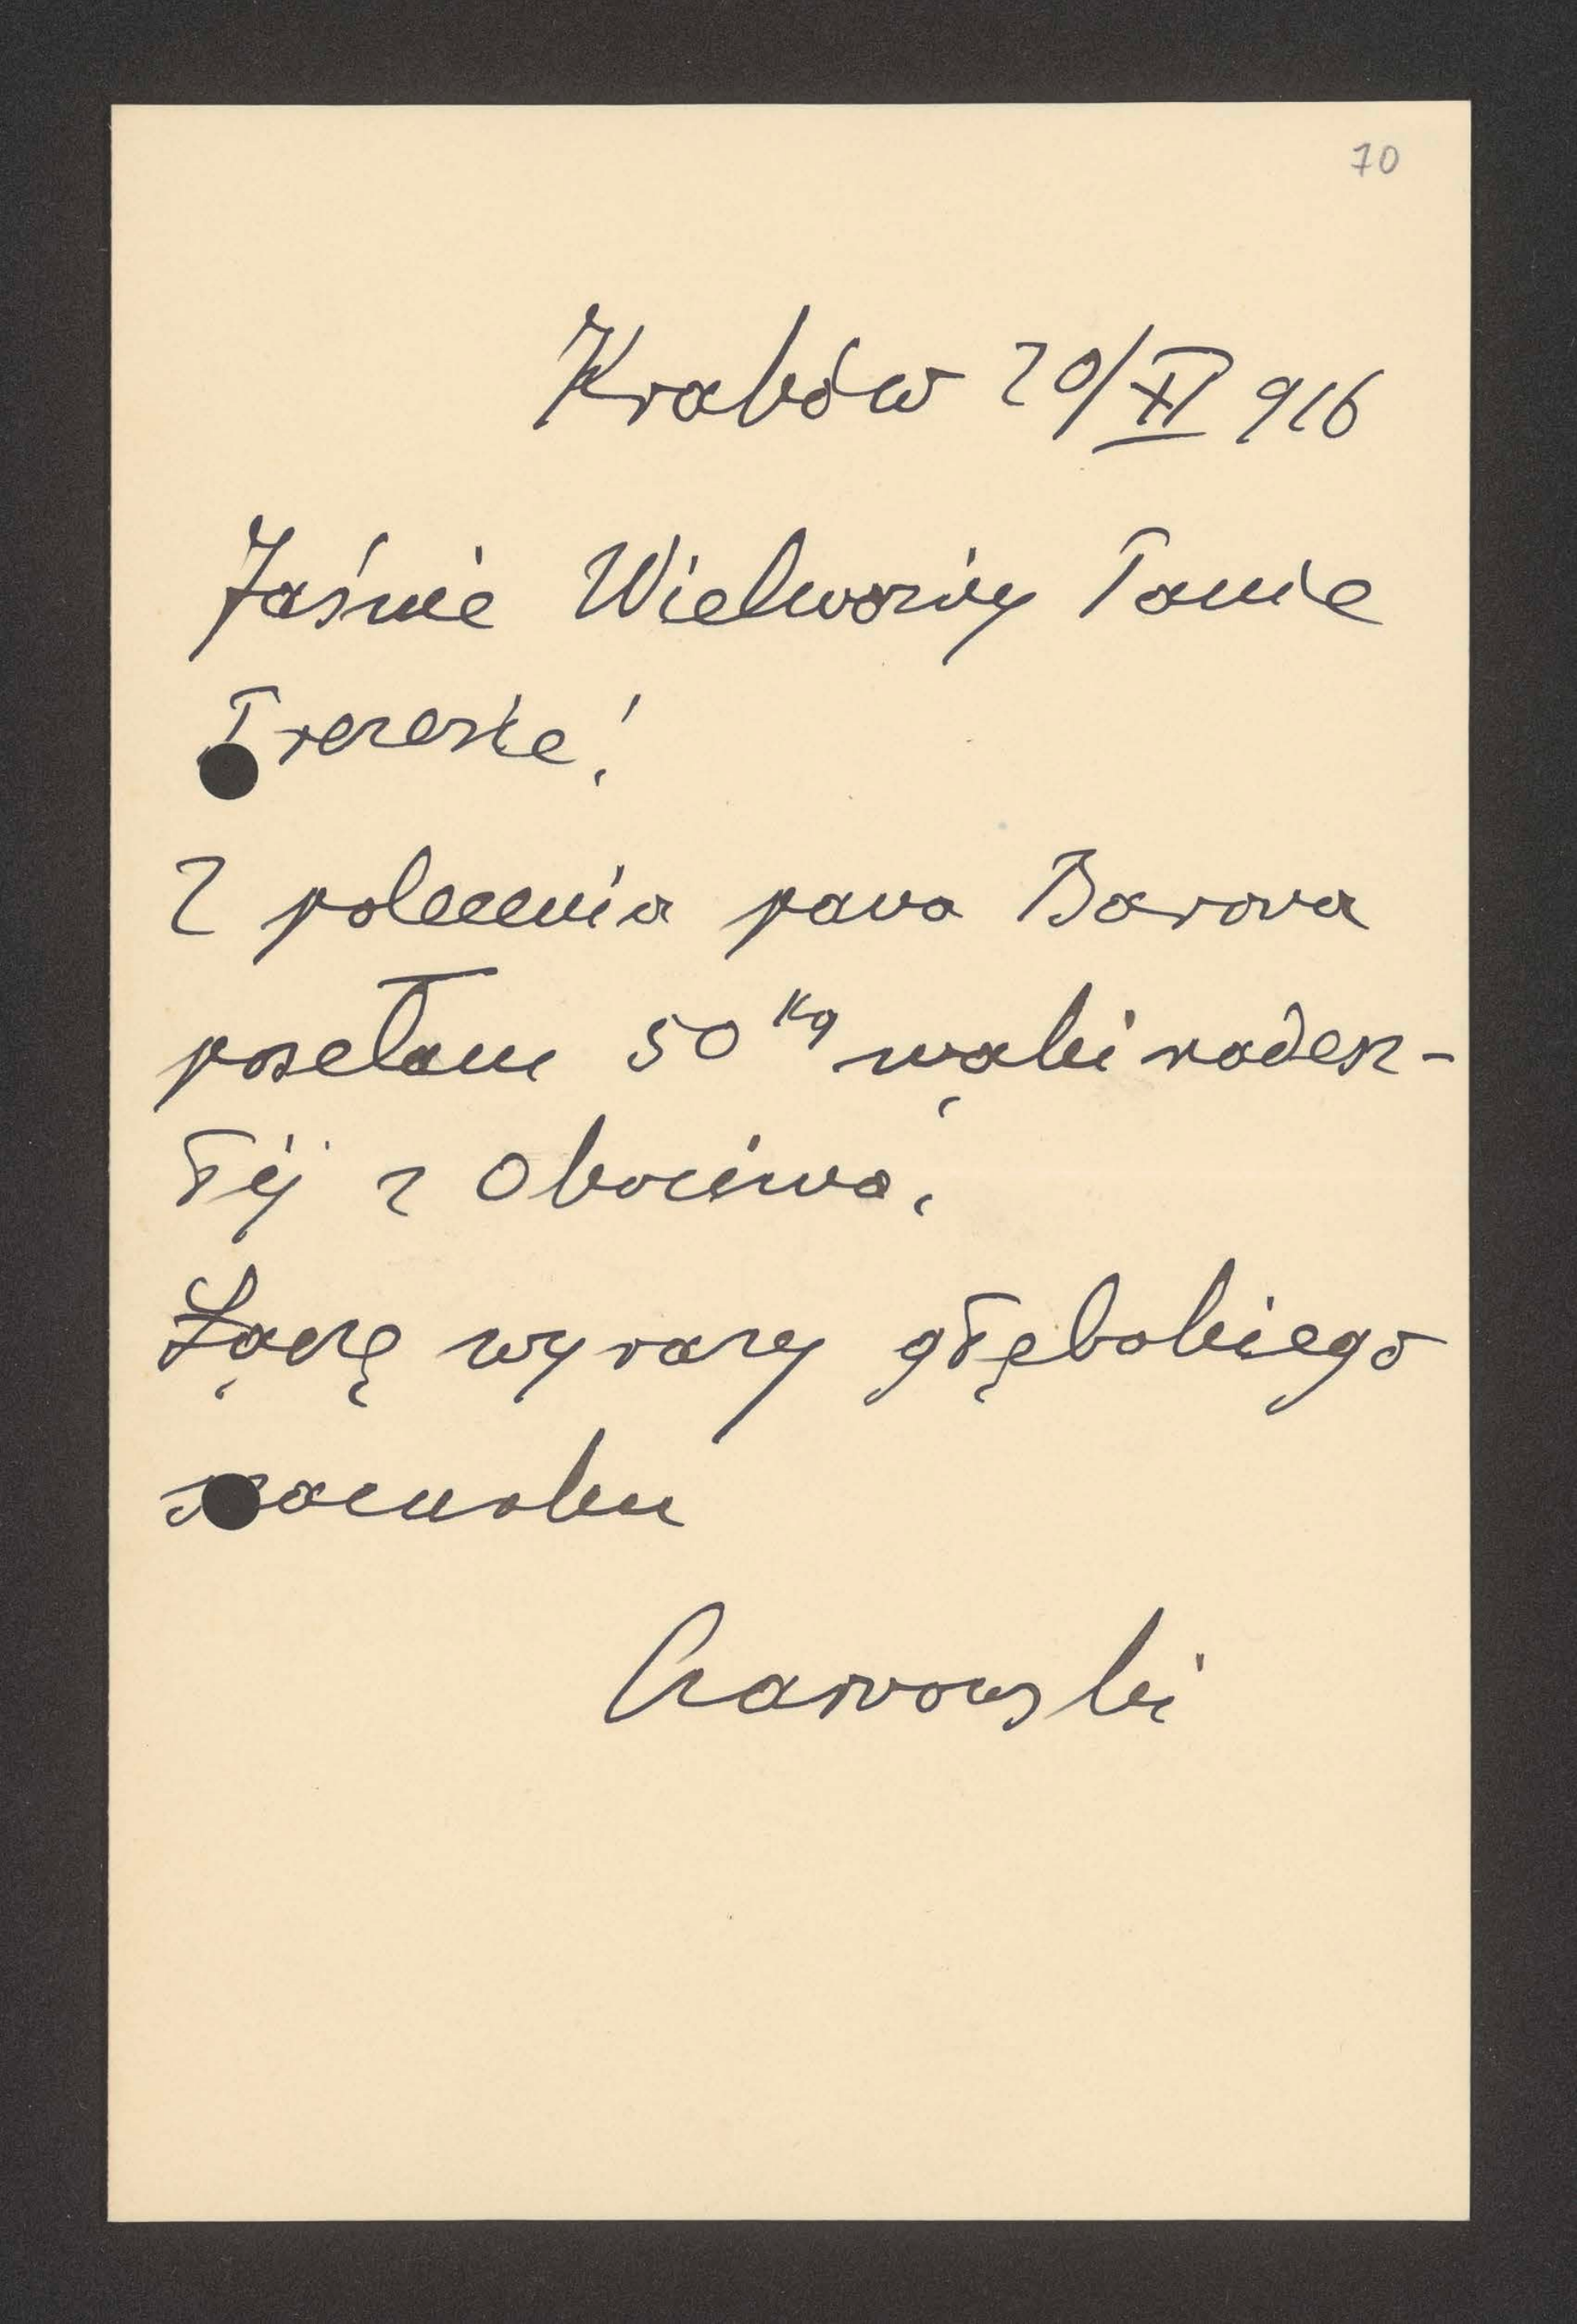 70
Kraków 20/XI 916
Jaśnie Wielmożny Panie
Prezesie!
Z polecenia pana Barona
posełam 50 Kg mąki nadesz-
łéj z Okocima.
Łączę wyrazy głębokiego
szacunku
Czarnowski